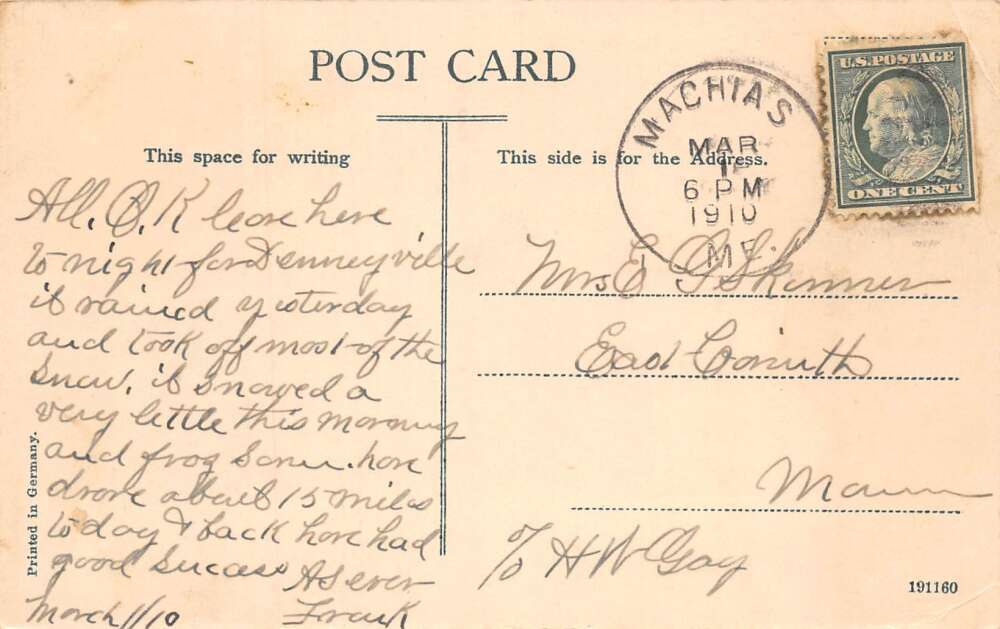 POST CARD
This space for writing
All. O. K leave here
to night for Denneyville
it rained yesterday
and took off most of the
snow. it snowed a
very little this morning
and frog some. have
drove about 15 miles
to day & back have had
good success As ever
March 1/10 Frank
Printed in Germany.
This side is for the Address.
MACHIAS
MAR
1
6 PM
1910
ME
U.S. POSTAGE
ONE CENT
Mrs E Skinner
East Corinth
Maine
c/o H W Gay
191160